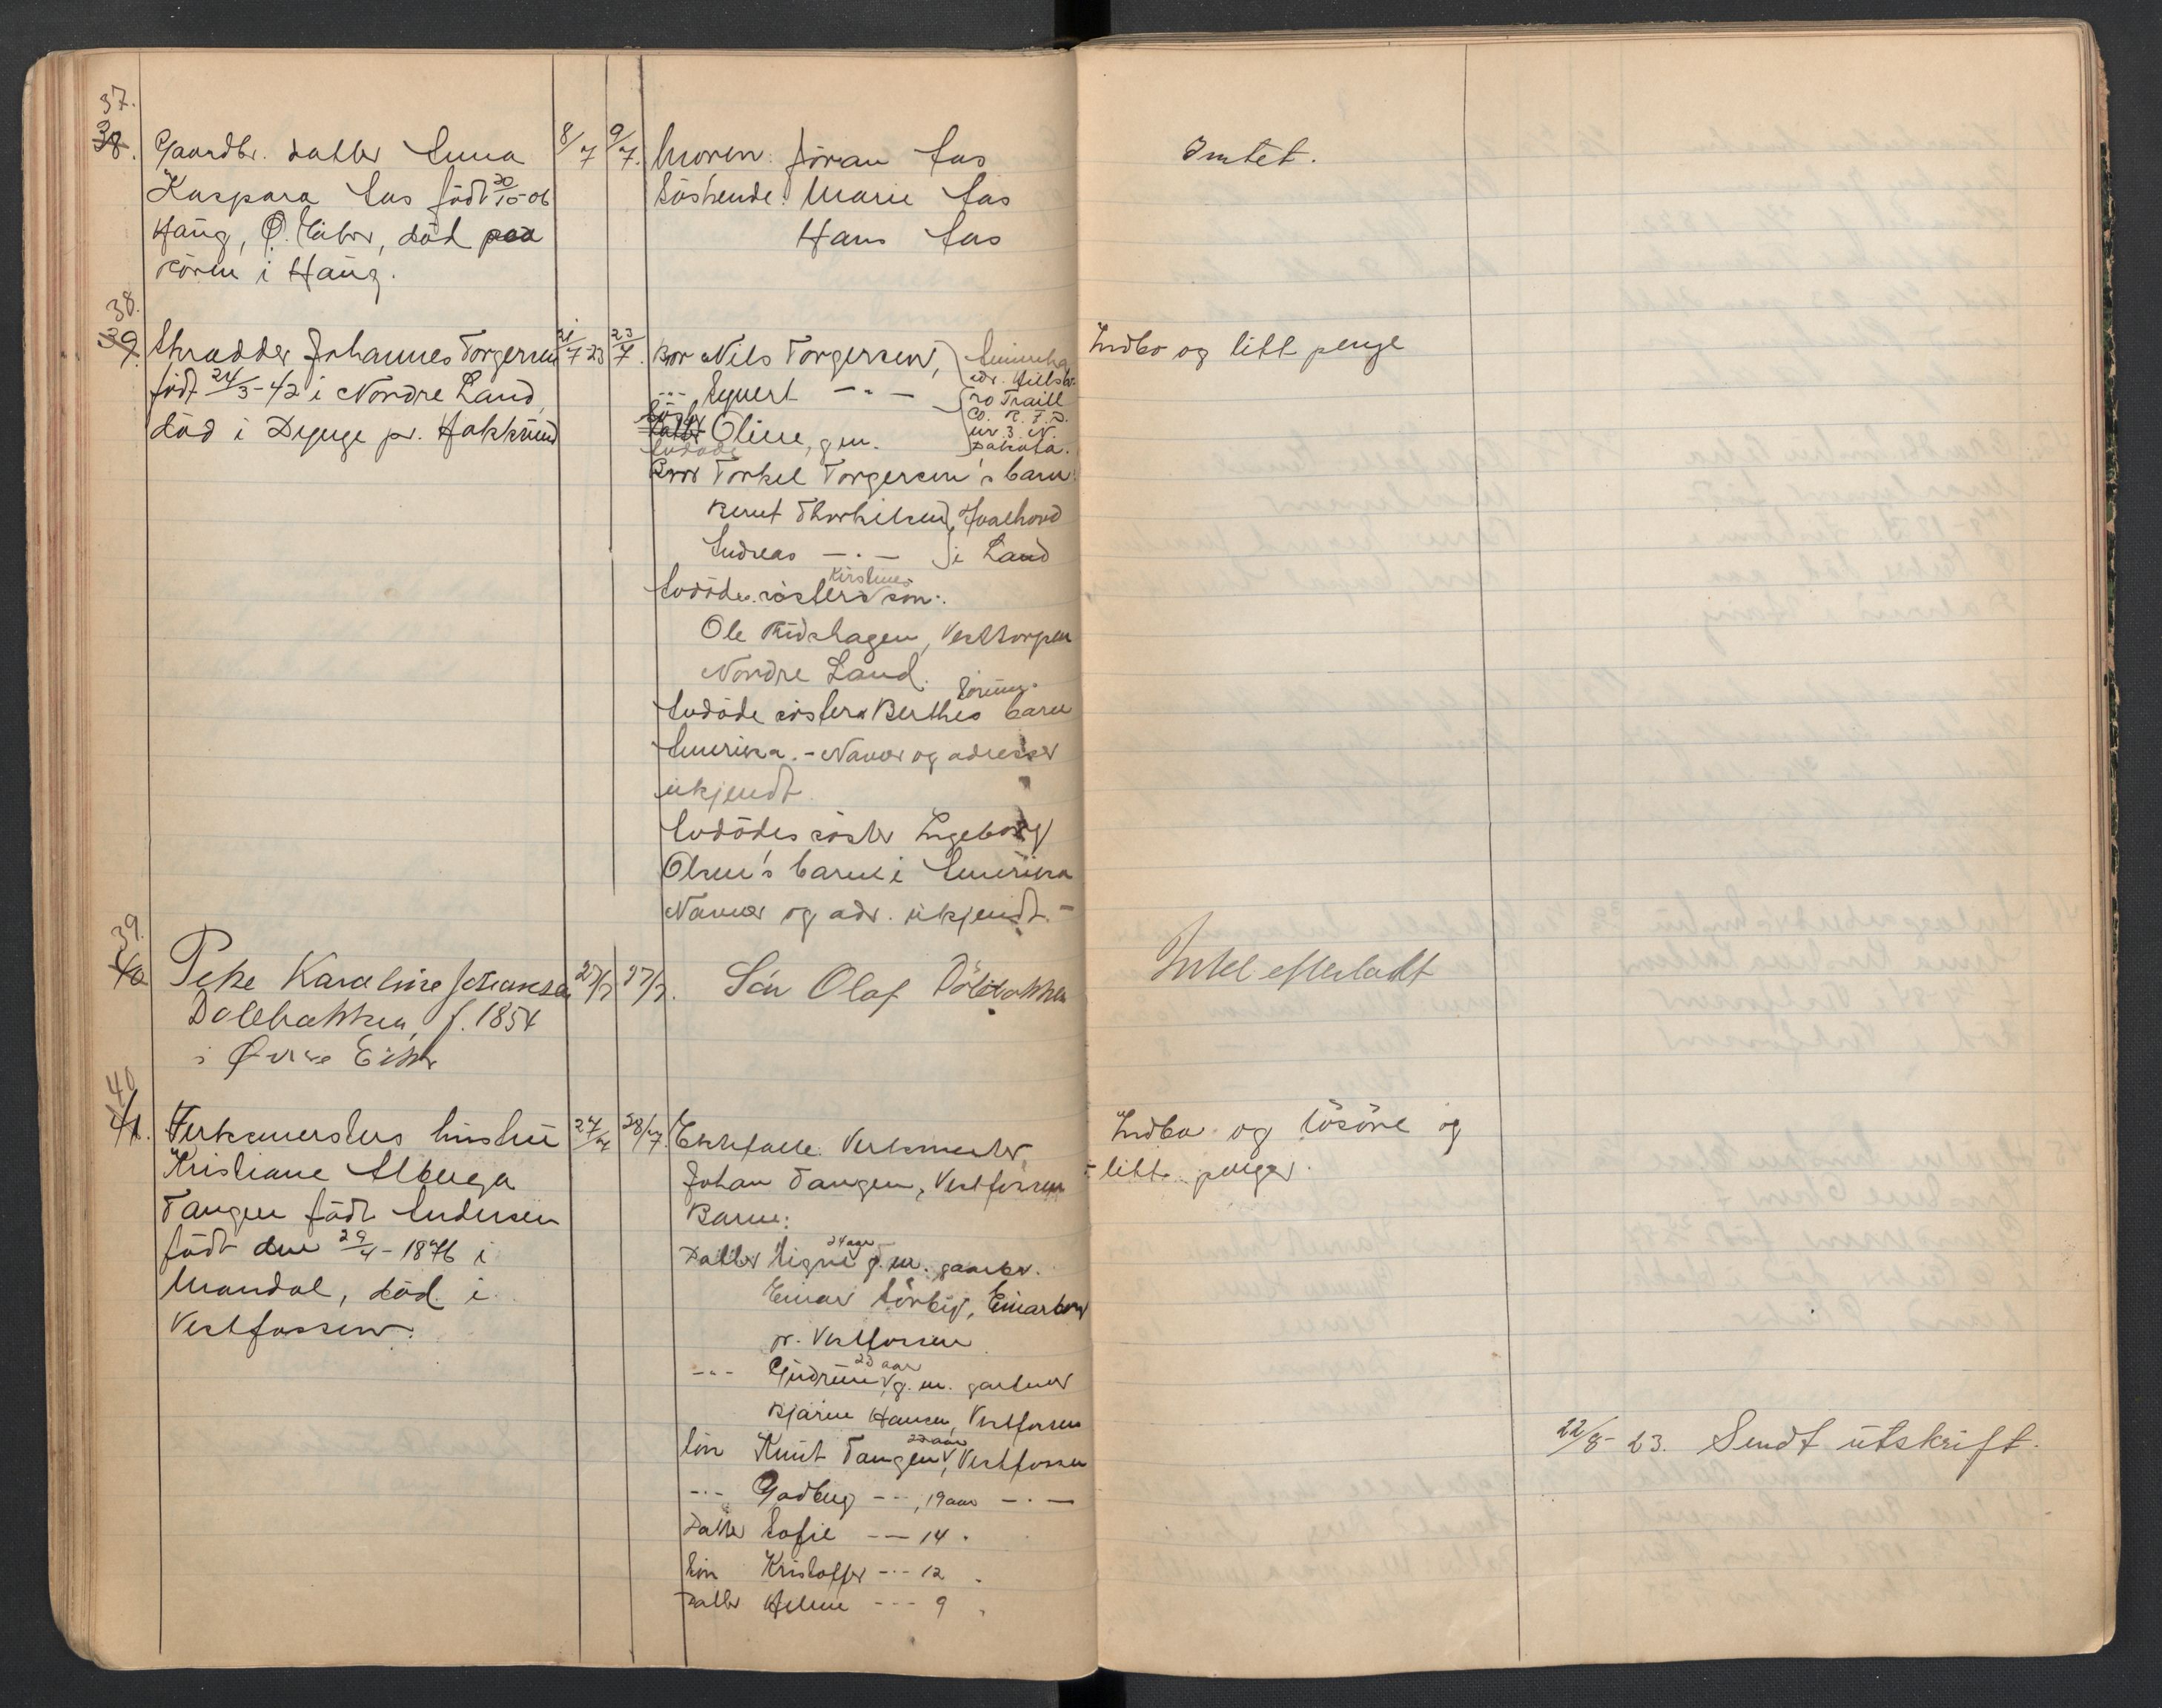 37.
38.
Gaardbr. datter Anna
Kaspara Aas født 30/10-06
Haug, Ø. Eiker, död paa
dören i Haug.
8/7
9/7.
Moren: Jöran Aas
Söskende: Marie Aas
Hans Aas
Intet.
38.
39.
Skrædder Johannes Torgersen
födt 24/3-42 i Nordre Land,
död i Dynge pr. Hokksund
21/7-23
23/7.
Bror Nils Torgersen,
-"- Syvert -"-
Söster
Oline, gm.
Amerika
adr. Hillsbo-
ro Traill
Co. R.F.D.
nr. 3. N.
Dakota.
Avdöde
Bror Torkel Torgersen's barn:
Bernt Thorkilsen, Hvalhovd
Andreas -"- i Land
Avdöde sösters Kirstines sön:
Ole Rudshagen, Vesttorpen
Nordre Land.
Avdöde sösters Berthes barn
Amerika. - Navn og adresser
ukjendt.
Avdödes söster Ingeborg
Olsen's barn i Amerika
Navn og adr. ukjendt. -
Indbo og litt penge
39.
40
Pike Karoline Johansen
Dölebakken, f. 1854
i Øvre Eiker
27/7
27/7.
Sön Olaf Dölebakken
Intet efterladt
40
41.
Verksmesters hustru
Kristiane Albuga
Tangen födt Andersen
födt den 29/4-1876 i
Mandal, död i
Vestfossen.
27/7
28/7.
Ektefælle: Verksmester
Johan Tangen, Vestfossen
Barn:
Datter Signe 24 aar g.m. gaardbr.
Einar Sörby,
pr. Vestfossen
-"- Gudrun 23 aar, g.m. gartner
Bjarne Hansen, Vestfossen
Sön Knut Tangen 22 aar, Vestfossen
-"- Godtug -"-, 19 aar -"-
Datter Sofie -"- 14 "
Sön Kristoffer -"- 12 "
Datter Helene -"- 9 "
Indbo og lösöre og
litt penger.
22/8-23. Sendt utskrift.